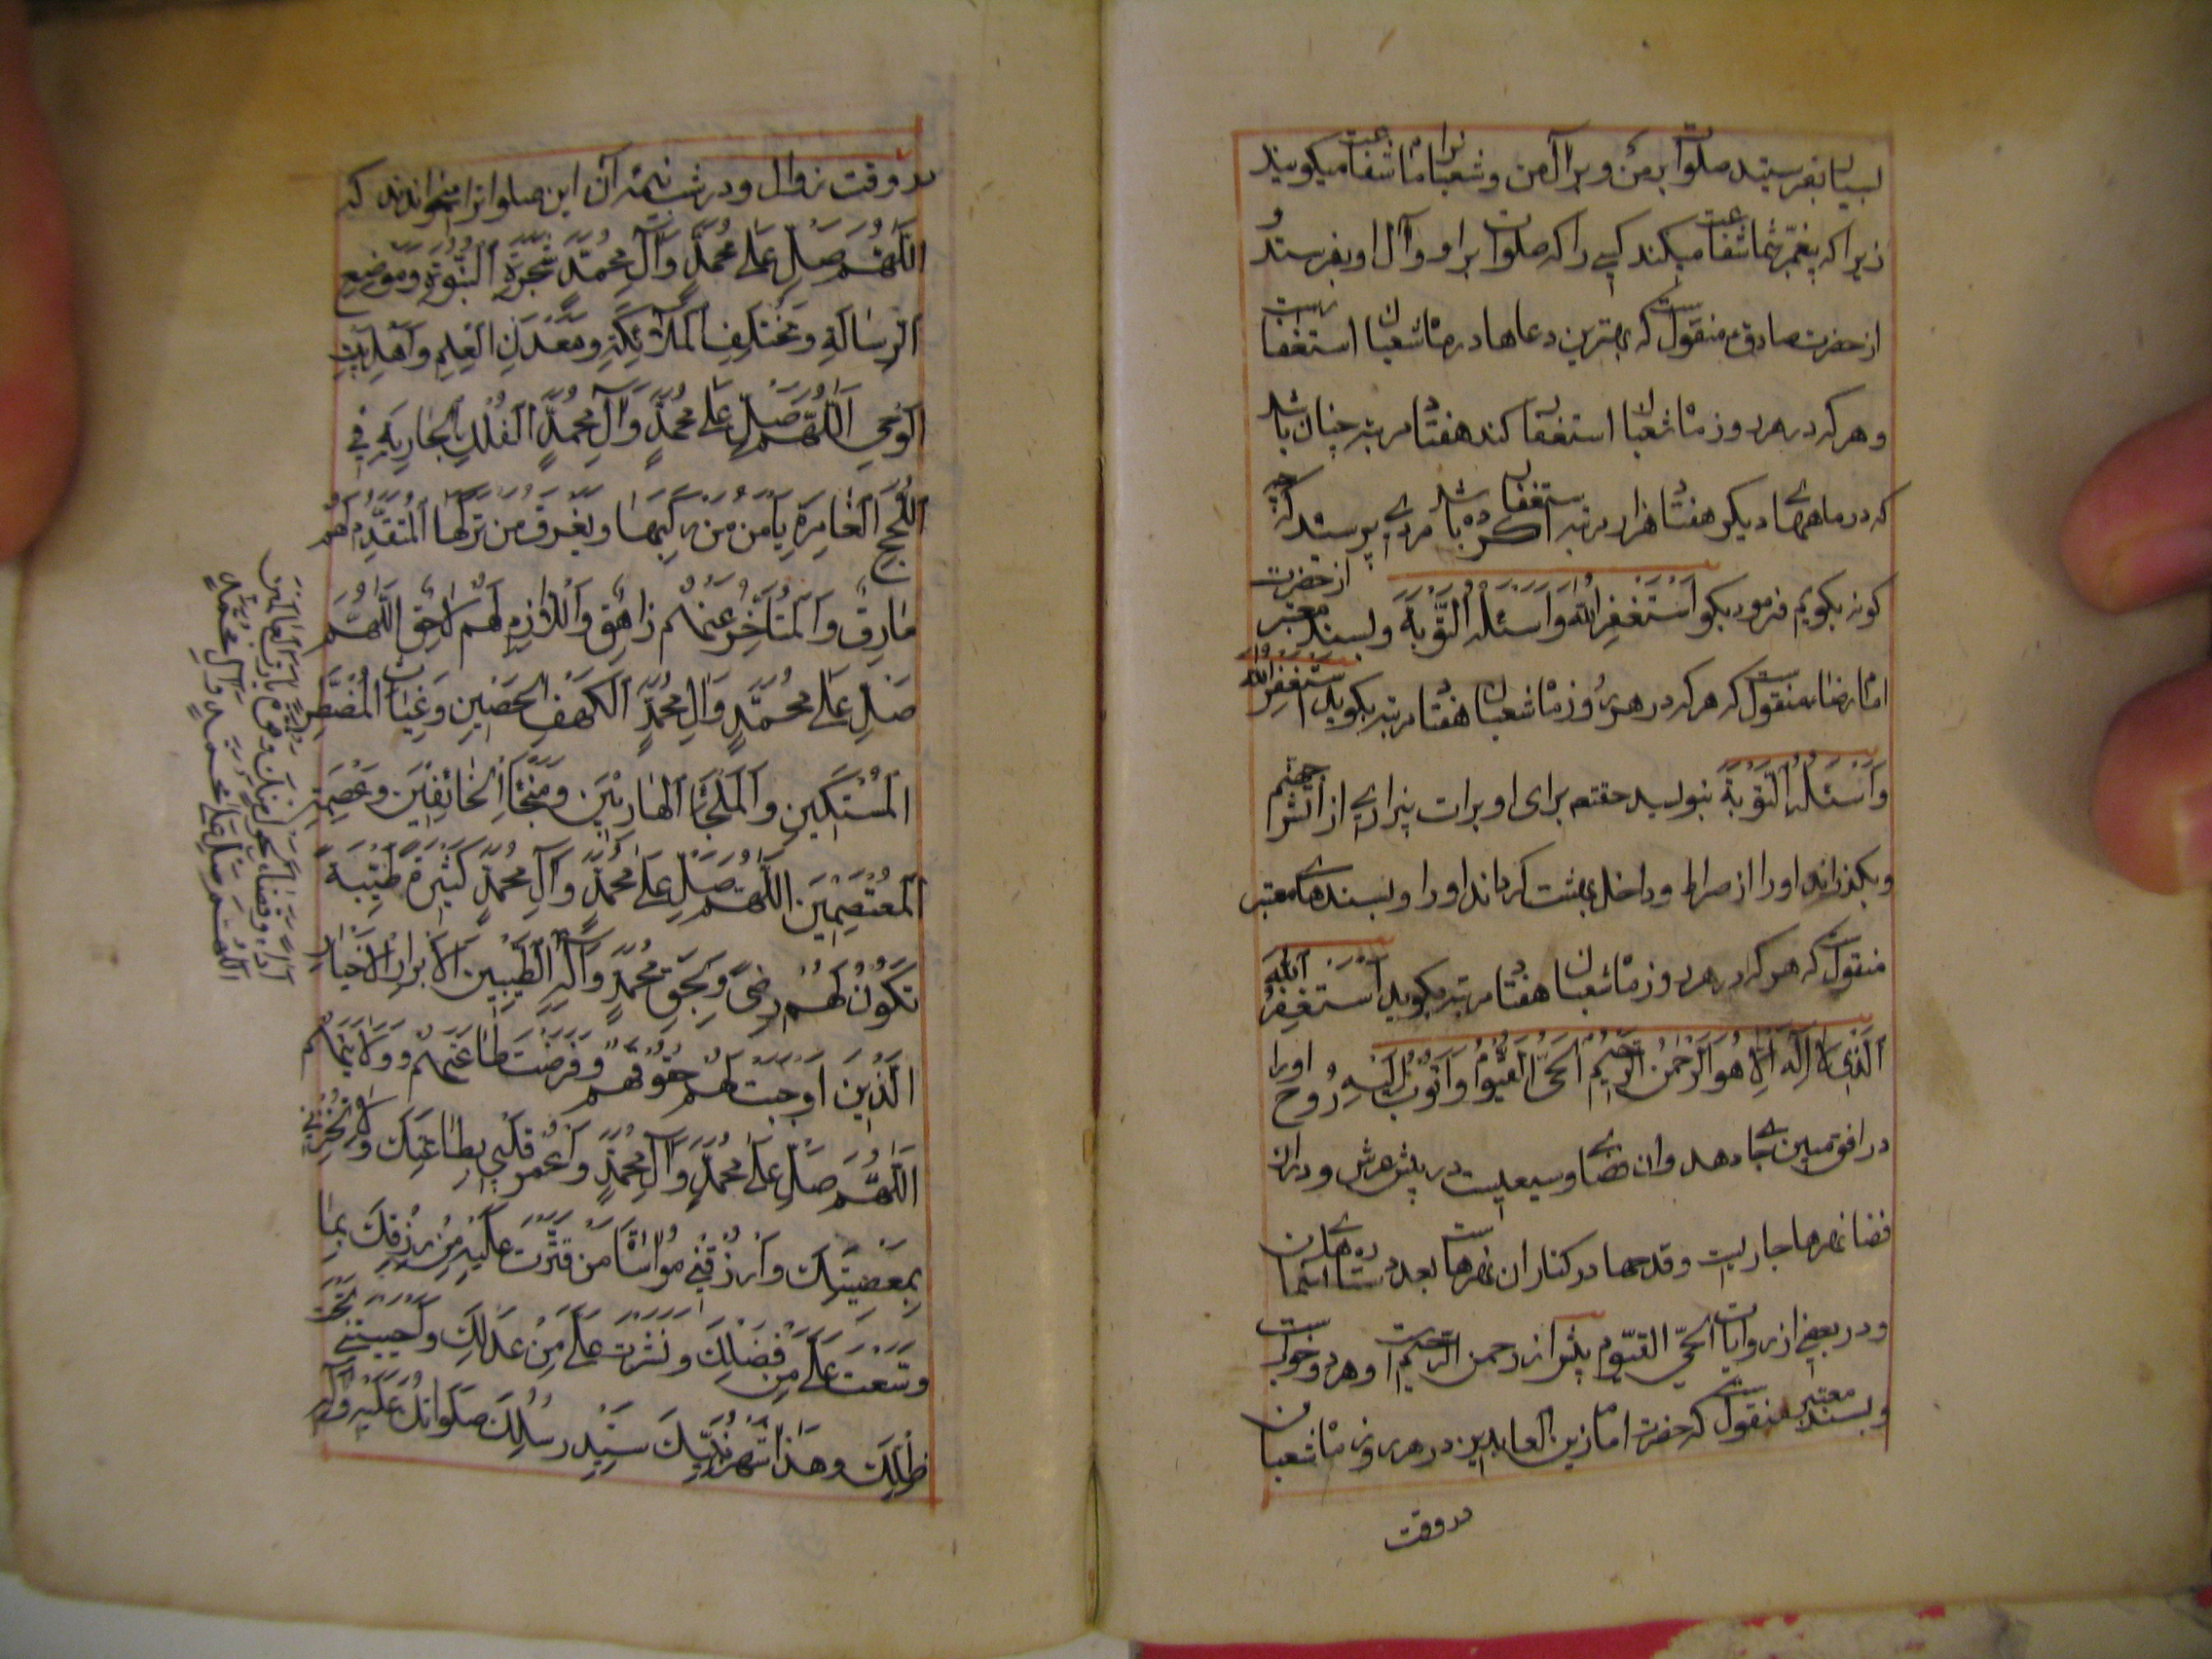 بسیار بفرستید صلوات بر من و بر آل من و شعبانرا ماه شفاعت میگویند
زیرا که پیغمبر شما شفاعت میکند کسی را که صلوات بر او و آل او بفرستد و
از حضرت صادق ع منقولست که بهترین دعاها در ماه شعبان استغفار است
و هر که در هر روز ماه شعبان استغفار کند هفتاد مرتبه چنان باشد
که در ماههای دیگر هفتاد هزار مرتبه استغفار کرده باشد مردی پرسید که چه
گونه بگویم فرمود بگو اَسْتَغْفِرُ اللّٰهَ وَاَسْئَلُهُ التَّوْبَةَ و بسند معتبر از حضرت
امام رضا منقولست که هر که در هر روز ماه شعبان هفتاد مرتبه بگوید اَسْتَغْفِرُ اللّٰهَ
وَاَسْئَلُهُ التَّوْبَةَ بنویسد حقتعم برای او برات بیزاری از آتش جهنم
و بگذراند او را از صراط و داخل بهشت گرداند او را و بسندهای معتبر
منقولست که هر که در هر روز ماه شعبان هفتاد مرتبه بگوید اَسْتَغْفِرُ اللّٰهَ
اَلَّذِی لا اِلٰهَ اِلَّا هُوَ الرَّحْمٰنُ الرَّحِیْمُ الْحَیُّ الْقَیُّوْمُ وَاَتُوْبُ اِلَیْهِ روح او را
در افق مبین جای دهد و ان فضای وسیعیست در پیش عرش و در ان
فضا نهرها جاریست و قدحها در کنار ان نهرهاست بعدد ستاره های آسمان
و در بعضی از روایات الحیّ القیّوم پیش از رحمن الرحیم است و هر دو خوبست
و بسند معتبر منقولست که حضرت امام زین العابدین در هر روز ماه شعبان
در وقت
در وقت زوال و در شب نیمه آن این صلوات را میخواندند که
اَللّٰهُمَّ صَلِّ عَلٰی مُحَمَّدٍ وَآلِ مُحَمَّدٍ شَجَرَةِ النُّبُوَّةِ وَمَوْضِعِ
الرِّسَالَةِ وَمُخْتَلَفِ الْمَلَائِکَةِ وَمَعْدَنِ الْعِلْمِ وَاَهْلِ بَیْتِ
الْوَحْیِ اَللّٰهُمَّ صَلِّ عَلٰی مُحَمَّدٍ وَآلِ مُحَمَّدٍ اَلْفُلْکِ الْجَارِیَةِ فِی
اللُّجَجِ الْغَامِرَةِ یَأْمَنُ مَنْ رَکِبَهَا وَیَغْرَقُ مَنْ تَرَکَهَا الْمُتَقَدِّمُ لَهُمْ
مَارِقٌ وَالْمُتَأَخِّرُ عَنْهُمْ زَاهِقٌ وَاللَّازِمُ لَهُمْ لَاحِقٌ اَللّٰهُمَّ
صَلِّ عَلٰی مُحَمَّدٍ وَآلِ مُحَمَّدٍ اَلْکَهْفِ الْحَصِیْنِ وَغِیَاثِ الْمُضْطَرِّ
الْمُسْتَکِیْنِ وَالْمَلْجَأِ الْهَارِبِیْنَ وَمَنْجَأِ الْخَائِفِیْنَ وَعِصْمَةِ
الْمُعْتَصِمِیْنَ اَللّٰهُمَّ صَلِّ عَلٰی مُحَمَّدٍ وَآلِ مُحَمَّدٍ کَثِیْرَةً طَیِّبَةً
تَکُوْنُ لَهُمْ رِضًی وَبِحَقِّ مُحَمَّدٍ وَآلِهِ الطَّیِّبِیْنَ الْاَبْرَارِ الْاَخْیَارِ
الَّذِیْنَ اَوْجَبْتَ لَهُمْ حُقُوْقَهُمْ وَفَرَضْتَ طَاعَتَهُمْ وَوَلَایَتَهُمْ
اَللّٰهُمَّ صَلِّ عَلٰی مُحَمَّدٍ وَآلِ مُحَمَّدٍ وَاعْمُرْ قَلْبِی بِطَاعَتِکَ وَلَا تُخْزِنِی
بِمَعْصِیَتِکَ وَارْزُقْنِی مُوَاسَاةَ مَنْ قَتَّرْتَ عَلَیْهِ مِنْ رِزْقِکَ بِمَا
وَسَّعْتَ عَلَیَّ مِنْ فَضْلِکَ وَنَشَرْتَ عَلَیَّ مِنْ عَدْلِکَ وَاَحْیَیْتَنِی تَحْتَ
ظِلِّکَ وَهٰذَا شَهْرُ نَبِیِّکَ سَیِّدِ رُسُلِکَ صَلَوَاتُکَ عَلَیْهِ وَآلِهِ
اَللّٰهُمَّ صَلِّ عَلٰی مُحَمَّدٍ وَآلِ مُحَمَّدٍ
اَدَاءً وَقَضَاءً بِحَوْلٍ مِنْکَ وَقُوَّةٍ یَا رَبَّ الْعَالَمِیْنَ